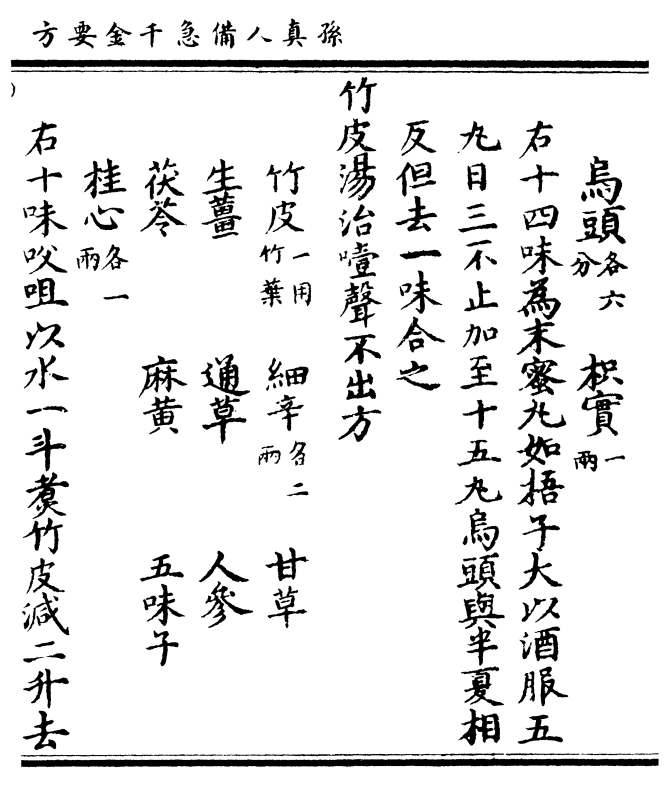 孫真人備急千金要方
烏頭各六分 枳實一兩
右十四味為末蜜丸如梧子大以酒服五
丸日三不止加至十五丸烏頭與半夏相
反但去一味合之
竹皮湯治噎聲不出方
竹皮一用竹葉 細辛各二兩 甘草
生薑 通草 人參
茯苓 麻黃 五味子
桂心各一兩
右十味㕮咀以水一斗煑竹皮減二升去